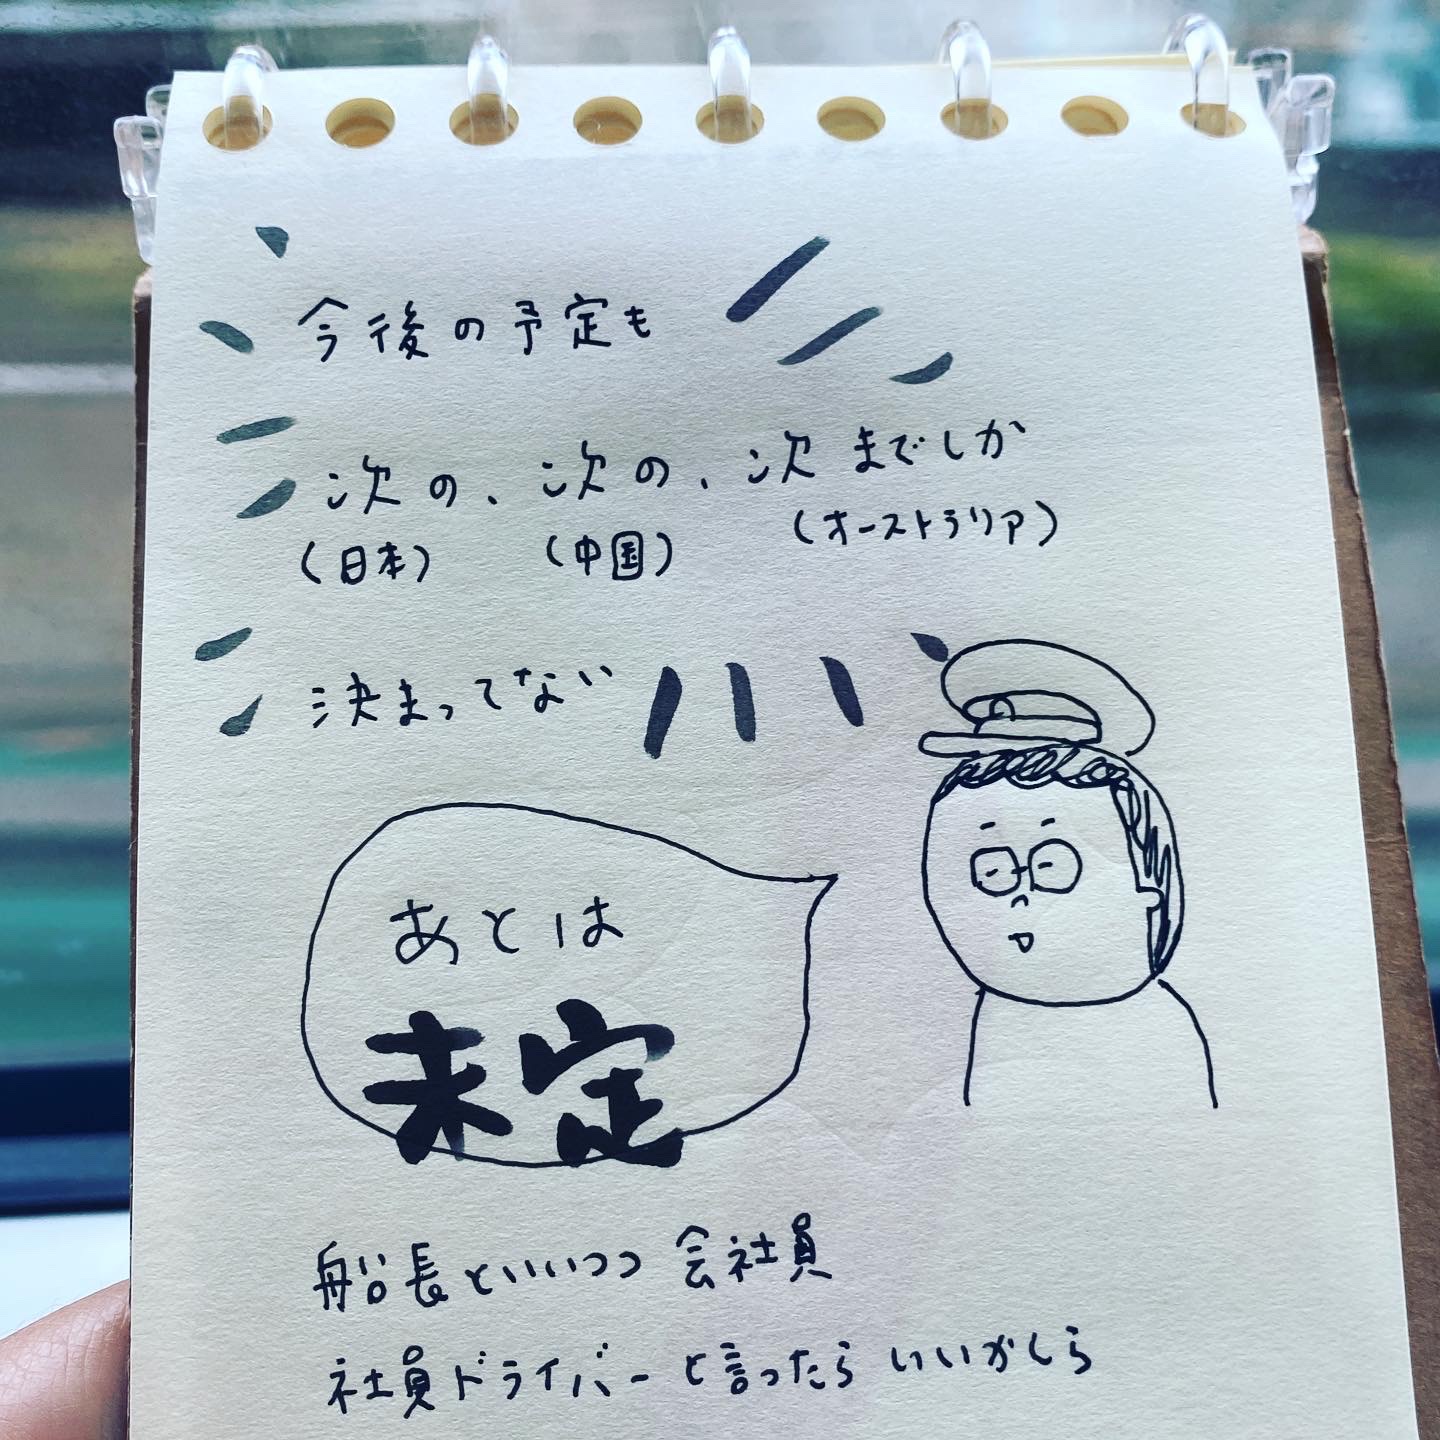 今後の予定も
次の、次の、次までしか
(日本) (中国) (オーストラリア)
決まってない
あとは
未定
船長といいつつ会社員
社員ドライバーと言ったらいいかしら